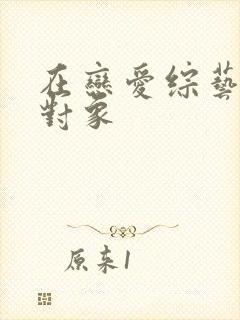 在戀愛綜藝
對象
原来1